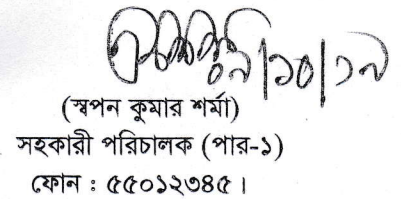 (স্বপন কুমার শর্মা)
সহকারী পরিচালক (পার-১)
ফোন : ৫৫০১২৩৪৫।